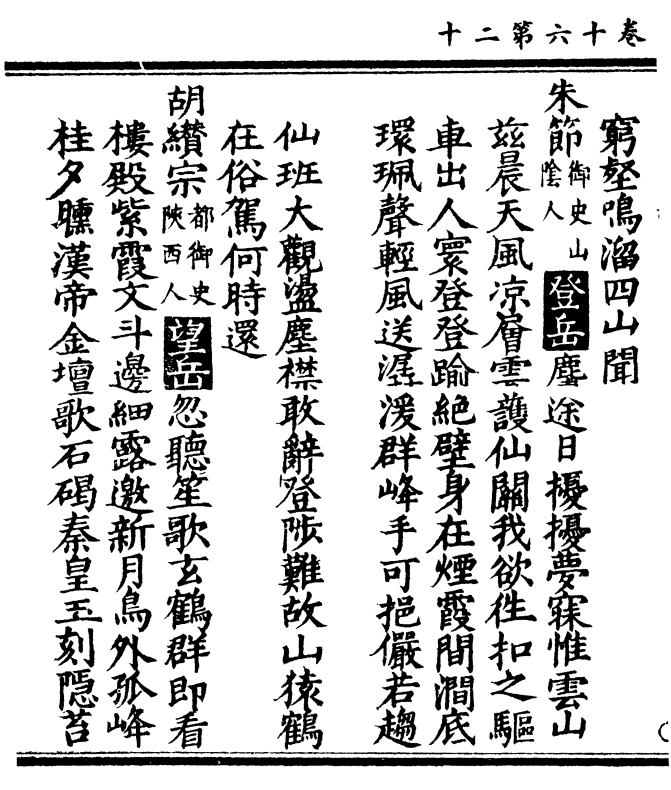 卷十六第二十
窮壑鳴溜四山聞
朱節御史山陰人登岳塵途日擾擾夢寐惟雲山
茲晨天風凉層雲護仙關我欲徃扣之驅
車出人寰登登踰絕壁身在煙霞間澗底
環珮聲輕風送潺湲群峰手可挹儼若趨
仙班大觀盪塵襟敢辭登陟難故山猿鶴
在俗駕何時還
胡纘宗都御史陝西人望岳忽聽笙歌玄鶴群即看
樓殿紫霞文斗邊細露邀新月鳥外孤峰
桂夕曛漢帝金壇歌石碣秦皇玉刻隱苔